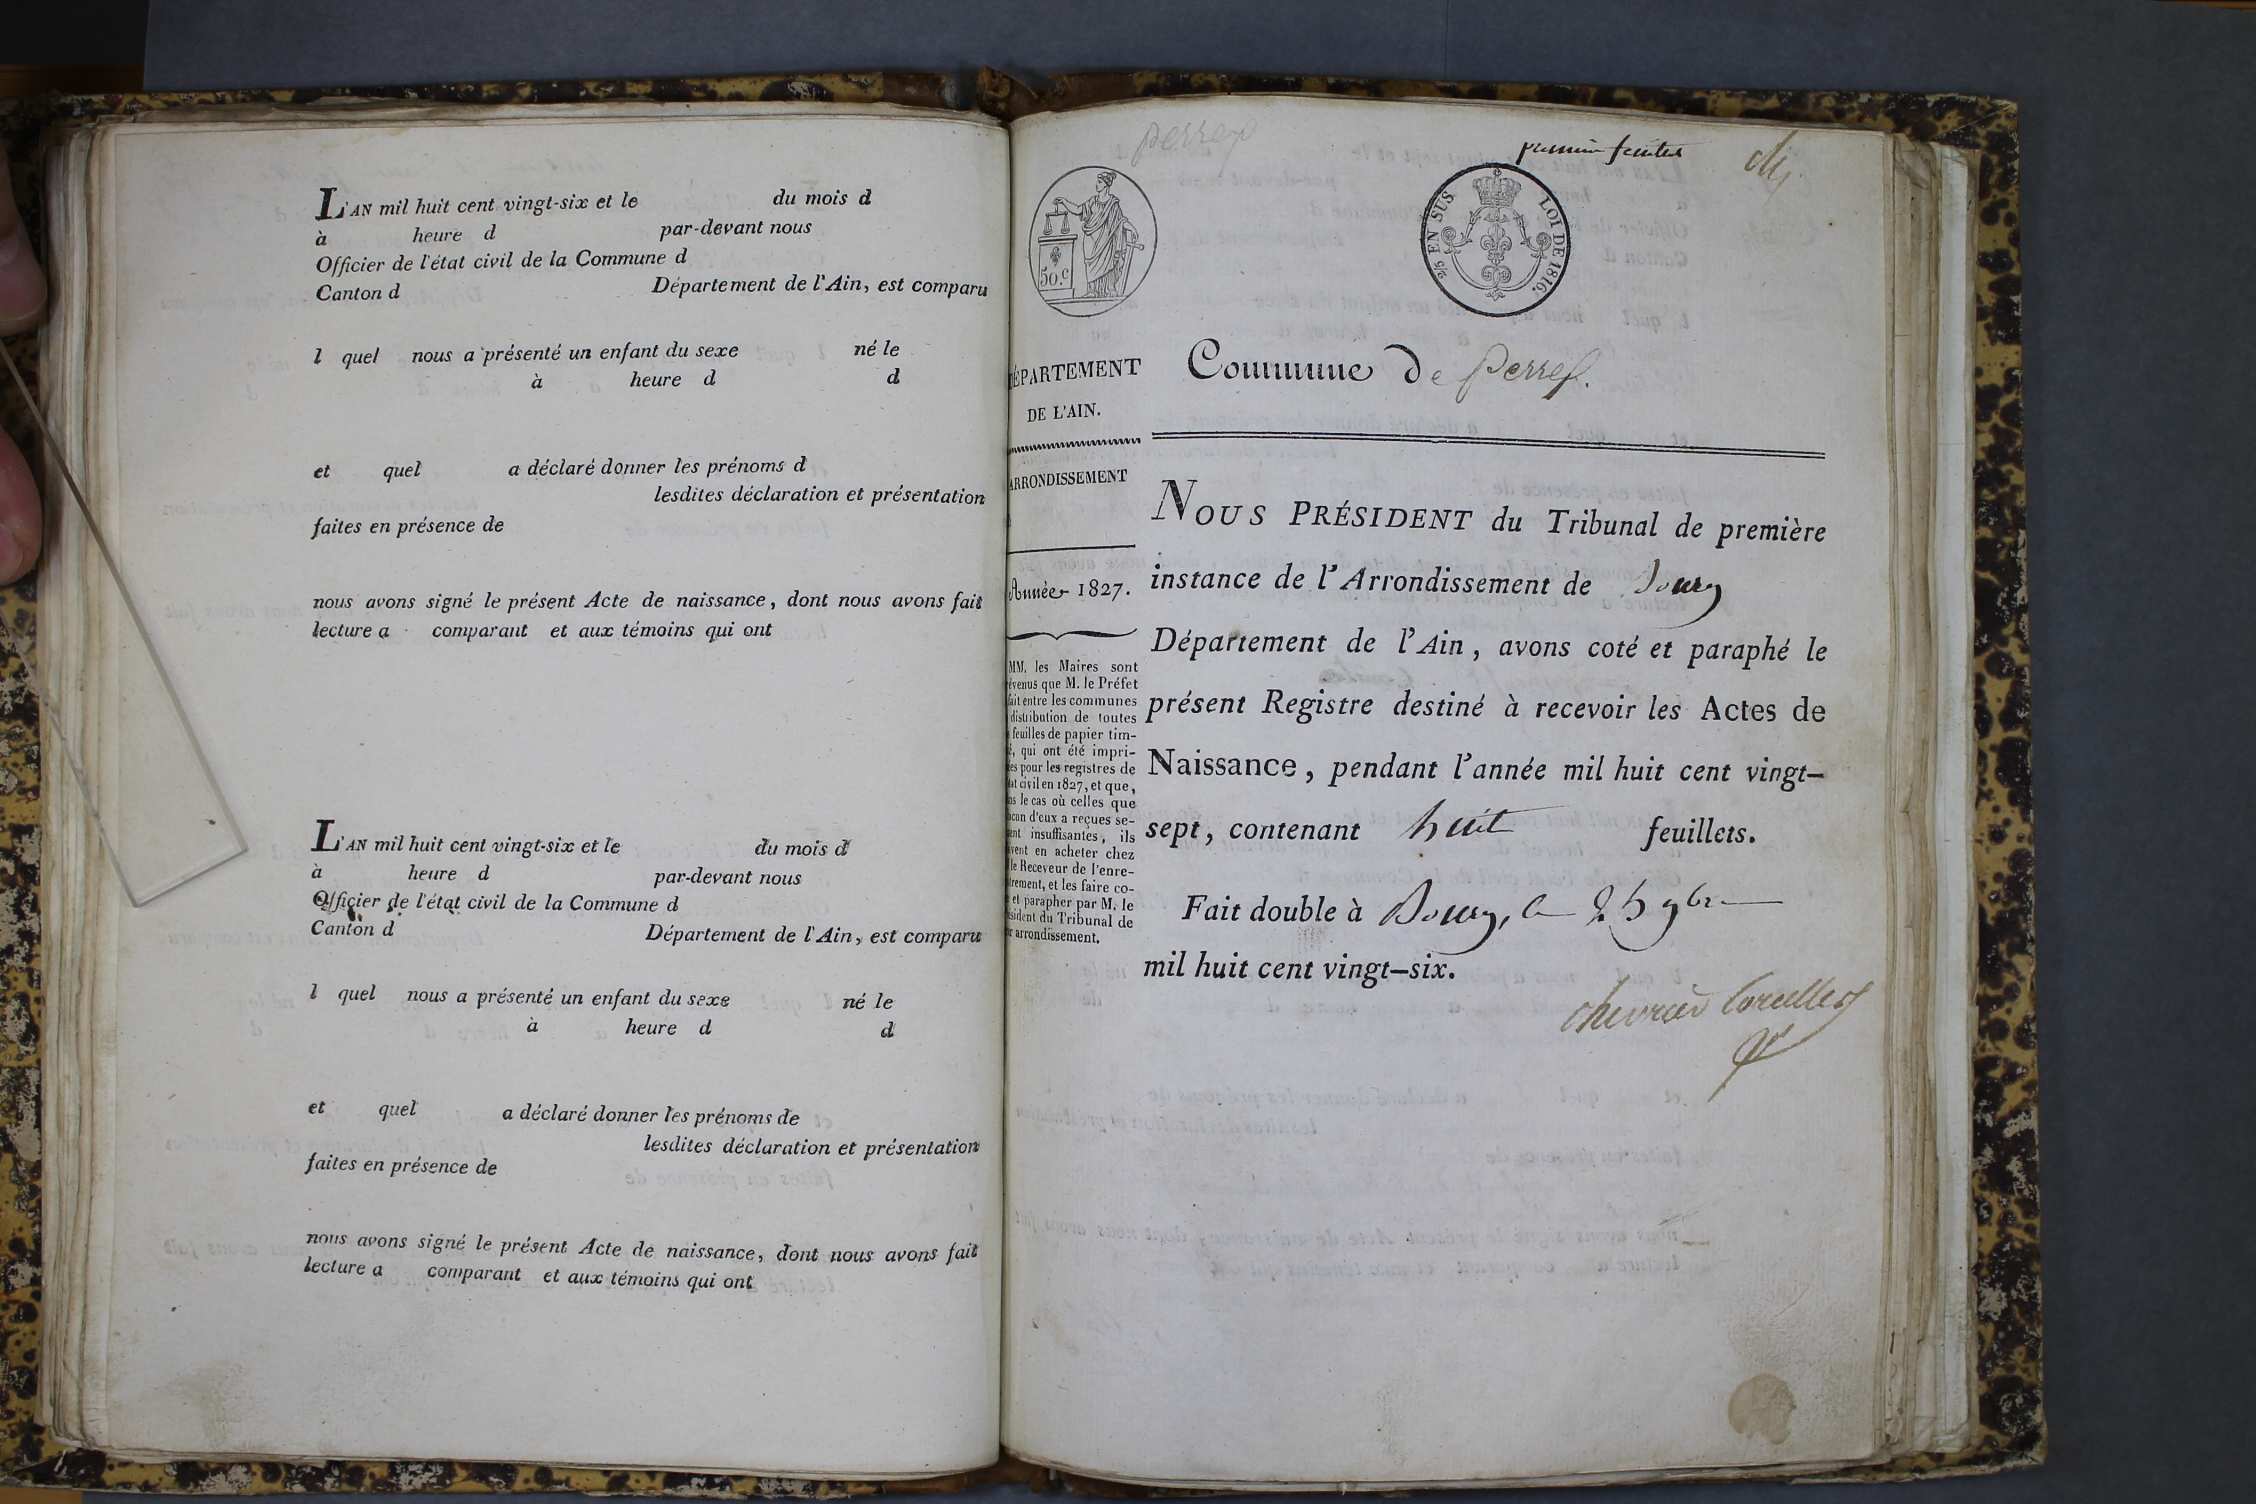 L'AN mil huit cent vingt-six et le du mois d
à heure d par-devant nous
Officier de l'état civil de la Commune d
Canton d Département de l'Ain, est comparu
l quel nous a présenté un enfant du sexe né le
à heure d d
et quel a déclaré donner les prénoms d
lesdites déclaration et présentation
faites en présence de
nous avons signé le présent Acte de naissance, dont nous avons fait
lecture a comparant et aux témoins qui ont
L'AN mil huit cent vingt-six et le du mois d
à heure d par-devant nous
Officier de l'état civil de la Commune d
Canton d Département de l'Ain, est comparu
l quel nous a présenté un enfant du sexe né le
à heure d d
et quel a déclaré donner les prénoms de
lesdites déclaration et présentation
faites en présence de
nous avons signé le présent Acte de naissance, dont nous avons fait
lecture a comparant et aux témoins qui ont
perrex
premier feuillet
50.c
2/5 EN SUS LOI DE 1816.
DÉPARTEMENT
DE L'AIN.
ARRONDISSEMENT
Année 1827.
MM. les Maires sont
évenus que M. le Préfet
fait entre les communes
distribution de toutes
feuilles de papier tim-
é, qui ont été impri-
es pour les registres de
at civil en 1827, et que,
ns le cas où celles que
acun d'eux a reçues se-
ent insuffisantes, ils
uvent en acheter chez
le Receveur de l'enre-
trement, et les faire co-
et parapher par M. le
ésident du Tribunal de
r arrondissement.
Commune De perrex.
NOUS PRÉSIDENT du Tribunal de première
instance de l'Arrondissement de Bourg
Département de l'Ain, avons coté et paraphé le
présent Registre destiné à recevoir les Actes de
Naissance, pendant l'année mil huit cent vingt-
sept, contenant huit feuillets.
Fait double à Bourg, le 25 9bre
mil huit cent vingt-six.
chevrier Corcelles